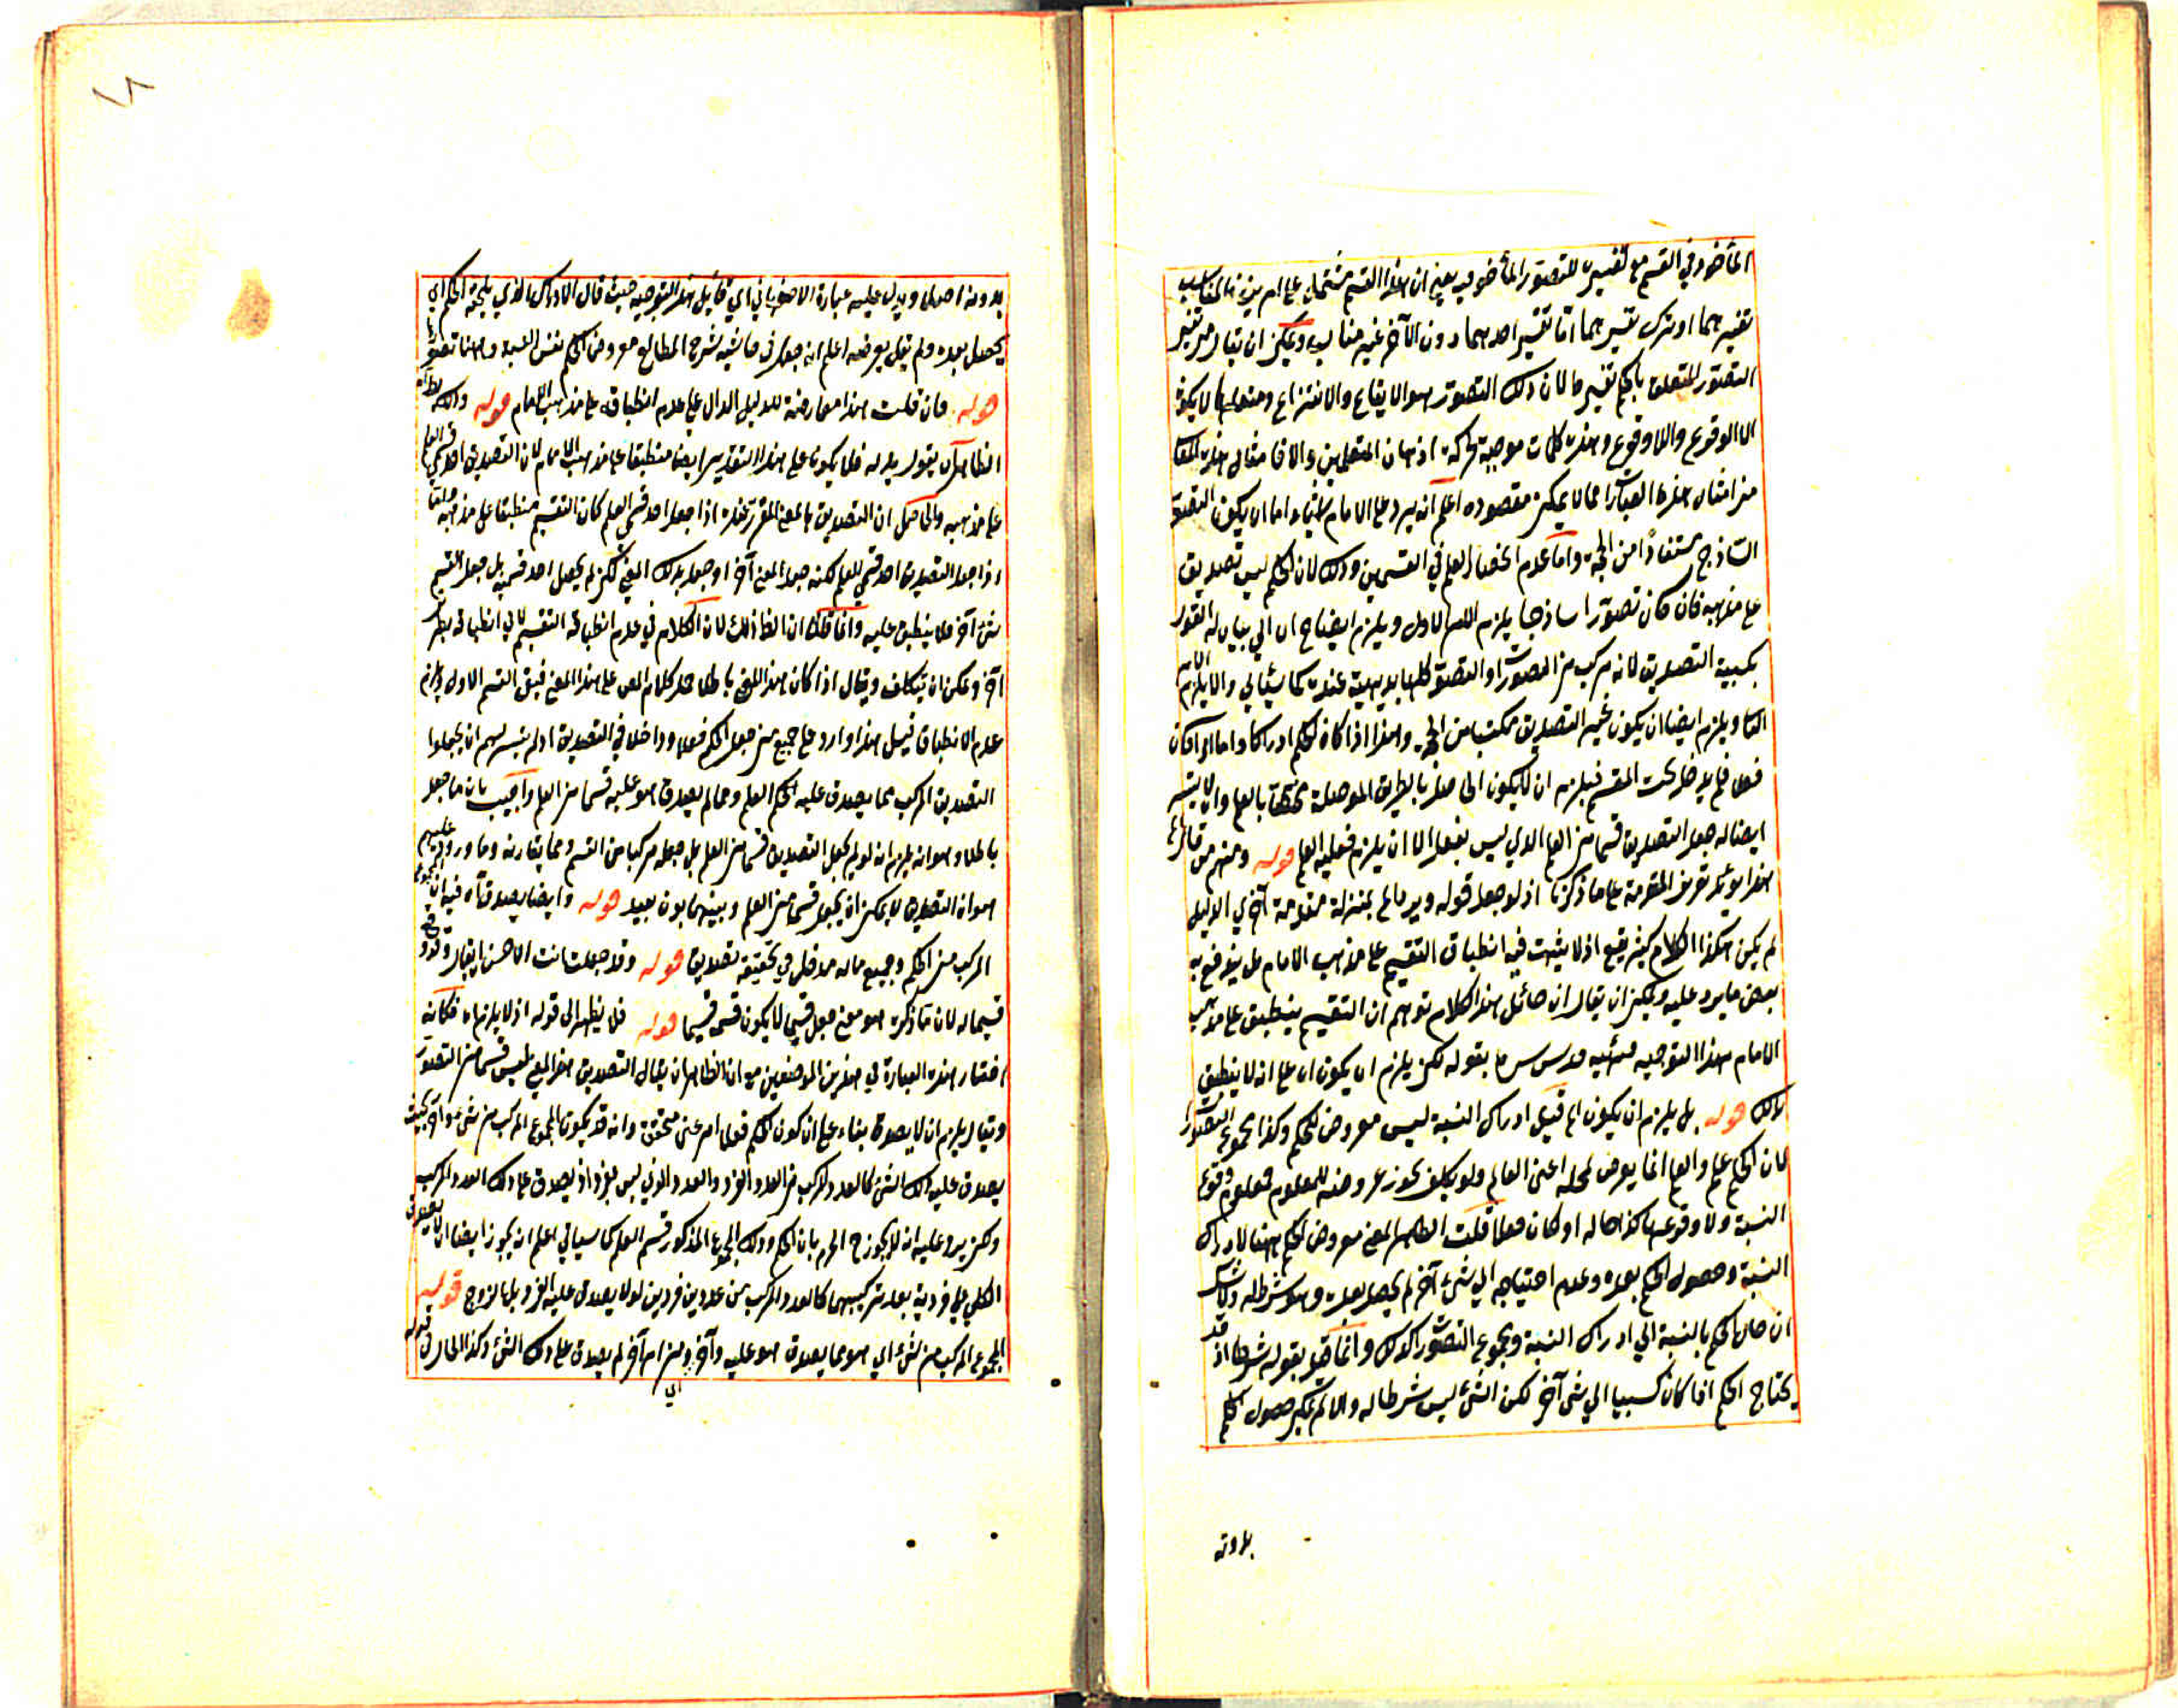 المأخوذ في القسم مع تفسيره للتصور المأخوذ فيه يعني ان هذا القسم مشتمل على امرين فالمناسب
تفسيرهما او ترك تفسيرهما امّا تفسير احدهما دون الآخر غير مناسب ويمكن ان يقال من تفسير
التصور المتعلق بالحكم تفسيرها لان ذلك التصور هو الايقاع والانتزاع ومتعلقهما لا يكون
الا الوقوع واللاوقوع وهذه كلمات موجبة محركة اذهان المتعلمين والا فامثال هذه
من امثال هذه العبارات مما لا يمكن مقصوده اعلم انه يرد على الامام اشياء اما ان يكون التصور
الساذج مستفادًا من الحجة واما عدم انحصار العلم في القسمين وذلك لان الحكم ليس تصديق
على مذهبه فان كان تصورا ساذجا يلزم الامر الاول ويلزم ايضا احتياج الى بيان له القول
بكسبية التصديق لانه مركب من التصورات والتصور كلها بديهية عنده كما سيأتي والا يلزم الامر
الثاني ويلزم ايضا ان يكون غير التصديق مكتسبا من الحجة وهذا اذا كان الحكم ادراكا واما اذا كان
فعلا فلم يدخل تحت المقسم فيلزم ان لا يكون الحاصل بالطريق الموصلة مختصا بالعلم وان لا يتيسر
ايضا له جعل التصديق قسما من العلم الذي ليس بفعل الا ان يلزم فعلية العلم قوله ومنهم من قال
هذا مؤيد تعرض المقدمة على ما ذكرنا اذ لو جعل قوله ويرد الخ بمنزلة مقدمة اخرى لدليل
لم يكن لهذا الكلام كثير نفع اذ لا يثبت فيه انطباق التقسيم على مذهب الامام بل يندفع به
بعض ما يرد عليه ويمكن ان يقال ان قائل هذا الكلام توهم ان التقسيم ينطبق على مذهب
الامام بهذا التوجيه فنبه قدس سره بقوله لكن يلزم ان يكون الخ على انه لا ينطبق
بذلك قوله بل يلزم ان يكون الخ قيل ادراك النسبة ليس معروض للحكم وكذا مجموع التصورات
لان الحكم علم والعلم انما يعرض لمحله اعني العالم ولو بكلف بجوز عروضه للمعلوم فمعلومه وقوع
النسبة ولا وقوعها كذا حاله او كان فعلا قلت الظاهر المعنى معروض الحكم ههنا لادراك
النسبة وحصول الحكم بعده وعدم احتياجه الى شئ آخر لم يحصل بعده وهو شرط له ولا شك
ان حال الحكم بالنسبة الى ادراك النسبة ومجموع التصورات كذلك وانما قيد بقوله شرط اذ قد
يحتاج الحكم اذا كان كسبيا الى شئ آخر لكن الشئ ليس شرطا له والا لم يمكن حصول الحكم
بدونه
١٨
بدونه اصلا ويدل عليه عبارة الاصفهاني اي قائل هذا التوجيه حيث قال الادراك الذي يلحقه الحكم اي
يحصل بعده ولم يقل يعرضه اعلم انه جعل في حاشية شرح المطالع معروض الحكم نفس النسبة وههنا تصور
قوله فان قلت هذا معارضة للدليل الدال على عدم انطباقه على مذهب الامام قوله وذلك
الظاهر ان يقول بدله فلا يكون على هذا التقدير ايضا منطبقا على مذهب الامام لان التصديق احد قسمي العلم
على مذهبه والحاصل ان التصديق بالمعنى المقرر عنده اذا جعل احد قسمي العلم كان التقسيم منطبقا على مذهبه
اذا جعل التصديق احد قسمي العلم لكنه جعل المعنى آخر او جعل بذلك المعنى لكن لم يجعل احد قسميه بل جعل القسم
شئ آخر فلا ينطبق عليه وانما قلنا ان الظاهر ذلك لان الكلام في عدم انطباق التقسيم لا في انطباقه
آخر ويمكن ان يتكلف ويقال اذا كان هذا المعنى باطلا حمل كلام المص على هذا المعنى فبقي القسم الاول ويلزم
عدم الانطباق قيل هذا وارد على جميع من جعل الحكم فعلا وداخلا في التصديق اذ لم يتيسر لهم ان يجعلوا
التصديق المركب مما يصدق عليه الحكم العلم ومما لم يصدق هو عليه قسما من العلم واجيب بان ما جعل
باطلا وهو انه يلزم انه لو لم يجعل التصديق قسما من العلم بل جعله مركبا من القسم ومما يقارنه وما ورد عليهم
هو ان التصديق لا يمكن ان يجعل قسما من العلم وبينهما بون بعيد قوله وايضا يصدق الخ فيه ان المجموع
المركب من الحكم وجميع ما له مدخل في تحقيقه تصديق قوله وقد جعلت انت الاحسن ان يقال وقد وقع
قسيما له لان ما ذكره هو معنى جعل قسم لا يكون قسمه قسيما قوله فلا يظهر الى قوله اذ لا يلزم الخ فكانه
اختار هذه العبارة في هذين الموضعين مع ان الظاهر ان يقال التصديق هذا المعنى ليس قسما من التصور
ويقال يلزم ان لا يصدق بناء على ان كون الحكم فعلا امر غير محقق وانه قد يكون المجموع المركب من شئ وآخر بحيث
يصدق عليه ذلك الشئ كالعدد المركب من العدد الفرد والعدد الذي ليس بفرد اذ يصدق على ذلك العدد المركب
ولكن يرد عليه انه لا يجوز ح الجزم بان الحكم وذلك المجموع المذكور قسم العلم كما سيأتي اعلم انه يجوز ايضا ان لا يصدق
الكلي على فرديه بعد تركيبهما كالعدد المركب من عددين فردين لو لا يصدق عليه الفرد بل الزوج قوله
المجموع المركب من الشئ اي هو مما يصدق هو عليه وآخر ومن امر آخر لم يصدق على ذلك الشئ وكذا الحال في قوله
اي